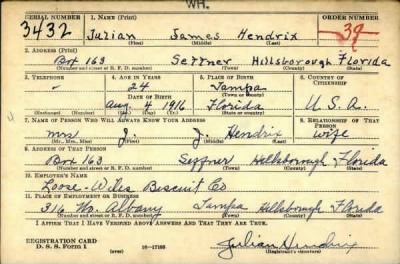 WH.
SERIAL NUMBER 1. NAME (Print) ORDER NUMBER
3432 Julian James Hendrix 39
(First) (Middle) (Last)
2. ADDRESS (Print)
Box 163 Seffner Hillsborough Florida
(Number and street or R. F. D. number) (Town) (County) (State)
3. TELEPHONE 4. AGE IN YEARS 5. PLACE OF BIRTH 6. COUNTRY OF CITIZENSHIP
- 24 Tampa
DATE OF BIRTH (Town or county)
Aug. 4 1916 Florida U. S. A.
(Mo.) (Day) (Yr.) (State or country)
7. NAME OF PERSON WHO WILL ALWAYS KNOW YOUR ADDRESS 8. RELATIONSHIP OF THAT PERSON
Mrs J. J. Hendrix Wife
(Mr., Mrs., Miss) (First) (Middle) (Last)
9. ADDRESS OF THAT PERSON
Box 163 Seffner Hillsborough Florida
(Number and street or R. F. D. number) (Town) (County) (State)
10. EMPLOYER'S NAME
Loose-Wiles Biscuit Co
11. PLACE OF EMPLOYMENT OR BUSINESS
316 No. Albany Tampa Hillsborough Florida
(Number and street or R. F. D. number) (Town) (County) (State)
I AFFIRM THAT I HAVE VERIFIED ABOVE ANSWERS AND THAT THEY ARE TRUE.
REGISTRATION CARD
D. S. S. Form 1 16—17105 Julian Hendrix
(over) (Registrant's signature)